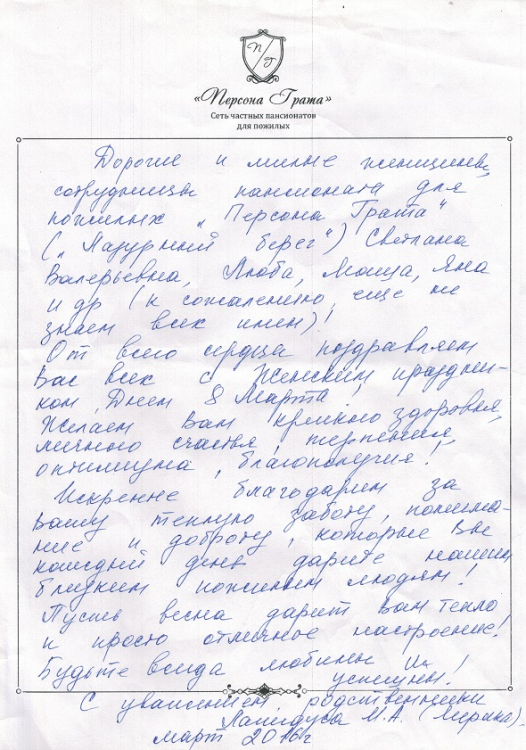 П Г
«Персона Грата»
Сеть частных пансионатов
для пожилых
Дорогие и милые женщины,
сотрудницы пансионата для
пожилых „Персона Грата"
(„Лазурный берег") Светлана
Валерьевна, Люба, Маша, Яна
и др (к сожалению, еще не
знаем всех имен)!
От всего сердца поздравляем
Вас всех с Женским праздни-
ком, Днем 8 Марта!
Желаем Вам крепкого здоровья,
личного счастья, терпения,
оптимизма, благополучия!
Искренне благодарим за
Вашу теплую заботу, понима-
ние и доброту, которые Вы
каждый день дарите нашим
близким пожилым людям!
Пусть весна дарит Вам тепло
и просто отличное настроение!
Будьте всегда любимы и
успешны!
С уважением, родственники
Лапидуса М.А. (Марика).
март 2016г